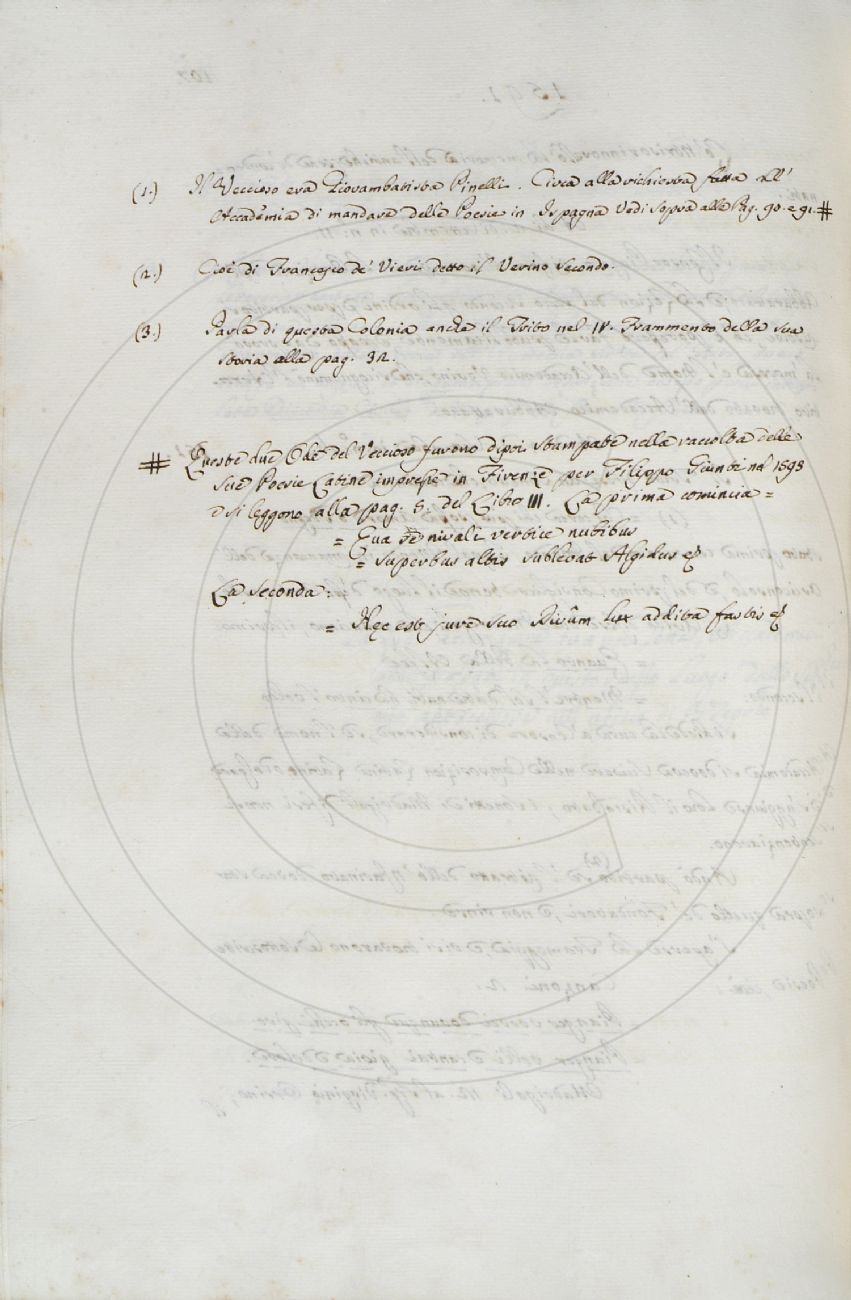 (1.) Il Veccioso era Giovambatista Pinelli. Circa alla richiesta fatta all'
Accademia di mandare delle Poesie in Ispagna Vedi sopra alla Pag. 90. e 91. #
(2.) Cioè di Francesco de' Vieri detto il Verino Secondo.
(3.) Parla di questa Colonia anche il Trito nel IV. Frammento della sua
Storia alla pag. 32.
# Queste due Ode del Veccioso furono dipoi stampate nella raccolta delle
sue Poesie Latine impresse in Firenze per Filippo Giunti nel 1593
e si leggono alla pag. 5. del Libro III. La prima comincia =
= nivali vertice nubibus
= Superbus altis sublevat Algidus
La seconda:
= Hęc est jure suo Divûm lux addita fastis